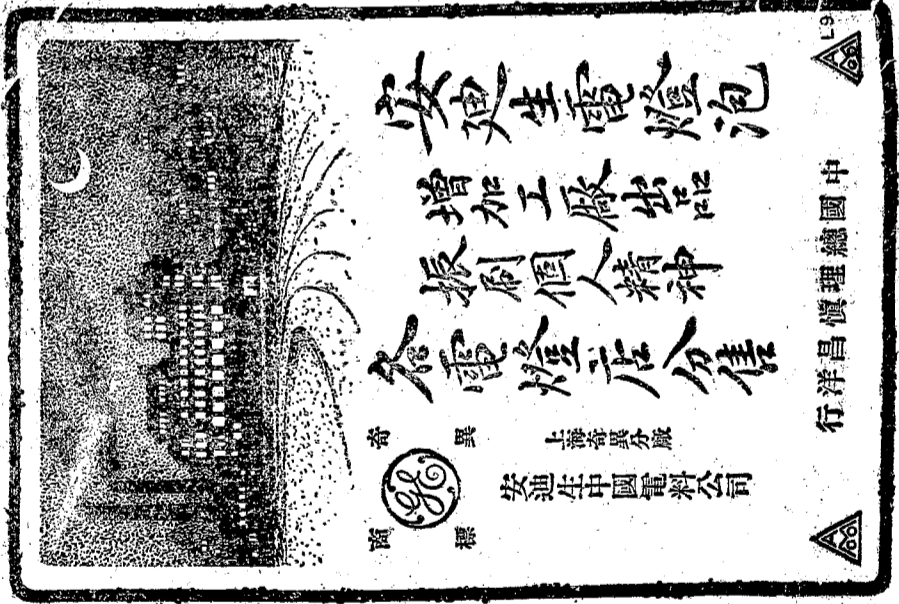 安迪生電燈泡
增加工廠出品
振刷個人精神
各電燈店分售
奇異
商標
上海奇異分廠
安迪生中國電料公司
中國總理慎昌洋行
L9